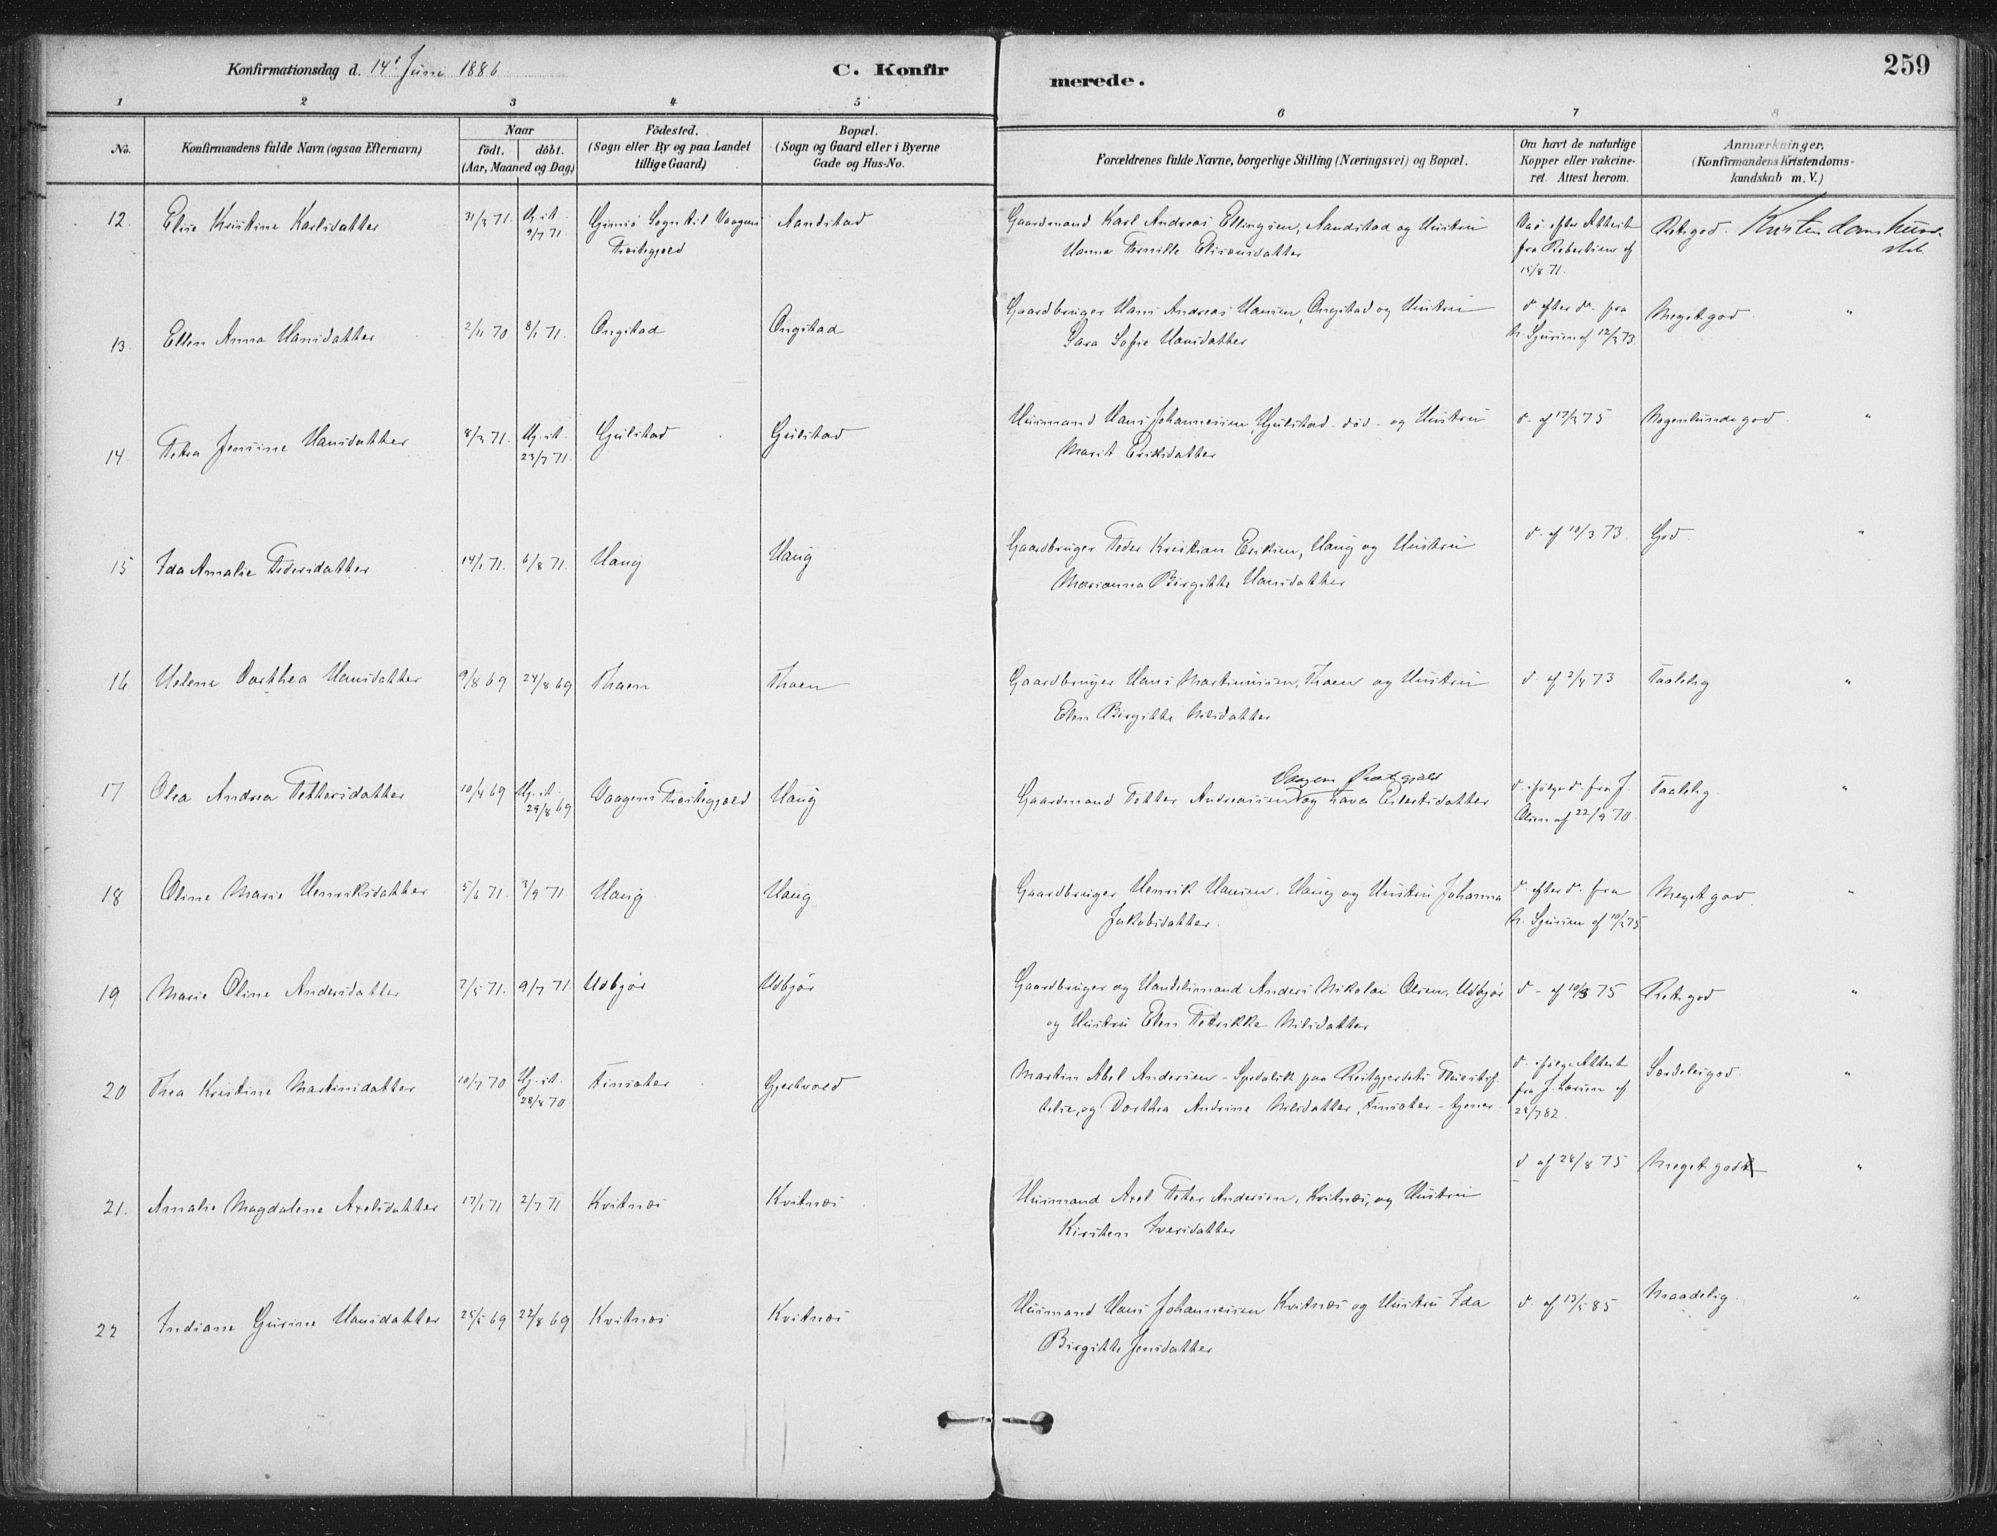 Konfirmationsdag d. 14' Juni 1886
C. Konfir
merede.
259
1 2 3 4 5 6 7 8
No.
Konfirmandens fulde Navn (ogsaa Efternavn)
Naar
födt. döbt.
(Aar, Maaned og Dag)
Födested.
(Sogn eller By og paa Landet
tillige Gaard)
Bopæl.
(Sogn og Gaard eller i Byerne
Gade og Hus-No.
Forældrenes fulde Navne, borgerlige Stilling (Næringsvei) og Bopæl.
Om havt de naturlige
Kopper eller vakcine-
ret. Attest herom.
Anmærkninger.
(Konfirmandens Kristendoms-
kundskab m. V.)
12. Elise Kristine Karlsdatter 31/3 71. 9/7 71 Gimsö Sogn til Vaagens Aandstad
Præstegjæld
Gaardmand Karl Andreas Ellingsen, Aandstad og Hustru
Hanna Pernille Elisæusdatter
Vac. efter Attest
fra Robertsen af
15/8 71.
Retgod. Kristendomskund-
skab.
13 Ellen Anna Hansdatter 2/11 70 8/1 71. Ongstad Ongstad
Gaardbruger Hans Andreas Hansen, Ongstad og Hustru
Sara Sofie Hansdatter
d. efter d. fra
Sjursen af 12/3 73.
Meget god "
14. Petra Jensine Hansdatter 8/3 71. 23/7 71. Gulstad Gulstad
Husmand Hans Johannesen, Gulstad - död - og Hustru
Marit Eriksdatter
d. af 17/3 75
Nogenlunde god "
15 Ida Amalie Pedersdatter 14/1 71. 6/8 71. Haug Haug
Gaardbruger Peder Kristian Eriksen, Haug og Hustru
Marianna Birgitte Hansdatter
d. af 10/3 73.
God. "
16 Helene Dorthea Hansdatter 9/8 69 24/8 69 Thoen Thoen
Gaardbruger Hans Martinussen, Thoen og Hustru
Elen Birgitte Nilsdatter
d af 2/4 73
Taalelig "
17 Olea Andrea Pettersdatter 10/4 69 29/8 69 Vaagens Præstegjæld Haug
Vaagens Præstgjæld
Gaardmand Petter Andreassen og Lava Eilertsdatter
d. ifölge d. fra J.
Olsen af 22/9 70.
Taalelig "
18 Oline Marie Henriksdatter 5/6 71. 3/9 71 Haug Haug
Gaardbruger Henrik Hansen, Haug og Hustru Johanna
Jakobsdatter.
d. efter d. fra
Sjursen af 10/3 75
Meget god. "
19 Marie Oline Andersdatter 7/5 71. 9/7 71 Udbjör Udbjör
Gaardbruger og Handelsmand Anders Nikolai Olsen, Udbjör
og Hustru Elen Petrikke Nilsdatter
d - af 10/3 75
Retgod "
20 Thea Kristine Martinsdatter 10/7 70 28/8 70 Finsæter Gjerstvold
Martin Abel Andersen - Spedalsk paa Reitgjerdets Pleiestif-
telse, og Dorthea Andrine Nilsdatter, Finsæter - tjener
d. ifölge Attest
fra J. Larsen af
28/7 82.
Særdeles god. "
21. Amalie Magdalene Axelsdatter 17/1 71 2/7 71 Kvitnæs Kvitnæs
Husmand Axel Peter Andersen, Kvitnæs, og Hustru
Kirsten Iversdatter
d af 28/8 75
Meget god "
22 Indiane Gurine Hansdatter 25/5 69 22/8 69 Kvitnæs Kvitnæs
Husmand Hans Johannesen Kvitnæs og Hustru Ida
Birgitte Jensdatter
d. af 13/5 85
Maadelig. "